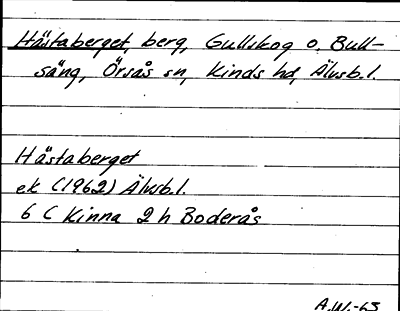 Hästaberget, berg, Gullskog o. Bull-
säng, Örsås sn, Kinds hd, Älvsb.l.
Hästaberget
ek (1962) Älvsb.l.
6 C Kinna 2 h Boderås
A.W.-63